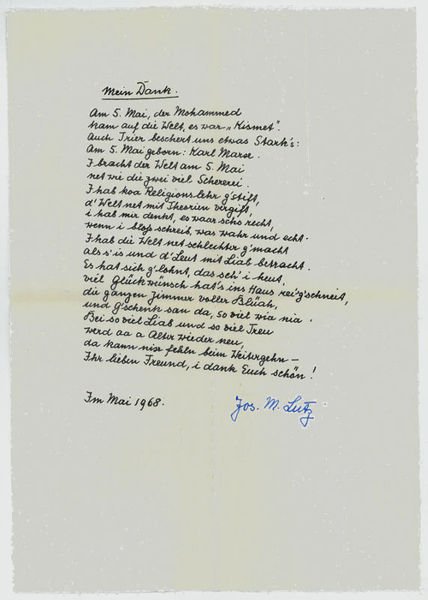 Mein Dank.
Am 5. Mai, der Mohammed
kam auf die Welt, es war „Kismet“.
Auch Trier beschert uns etwas Stark's:
Am 5. Mai geborn: Karl Marx.
I bracht der Welt am 5. Mai
net wie die zwei viel Schererei.
I hab koa Religionslehr g'stift,
d'Welt net mit Theorien vergift,
i hab mir denkt, es waar scho recht,
wenn i bloß schreib, was wahr und echt.
I hab die Welt net schlechter g'macht
als s'is und d'Leut mit Liab betracht.
Es hat sich g'lohnt, das seh' i heut,
viel Glückwünsch hat's ins Haus rei'g'schneit,
die ganzen Zimmer voller Blüah,
und G'schenk san da, so viel wia nia.
Bei so viel Liab und so viel Treu
werd aa a Alter wieder neu,
da kann nix fehln beim Weitergehn –
Ihr lieben Freund, i dank Euch schön!
Im Mai 1968.
Jos. M. Lutz